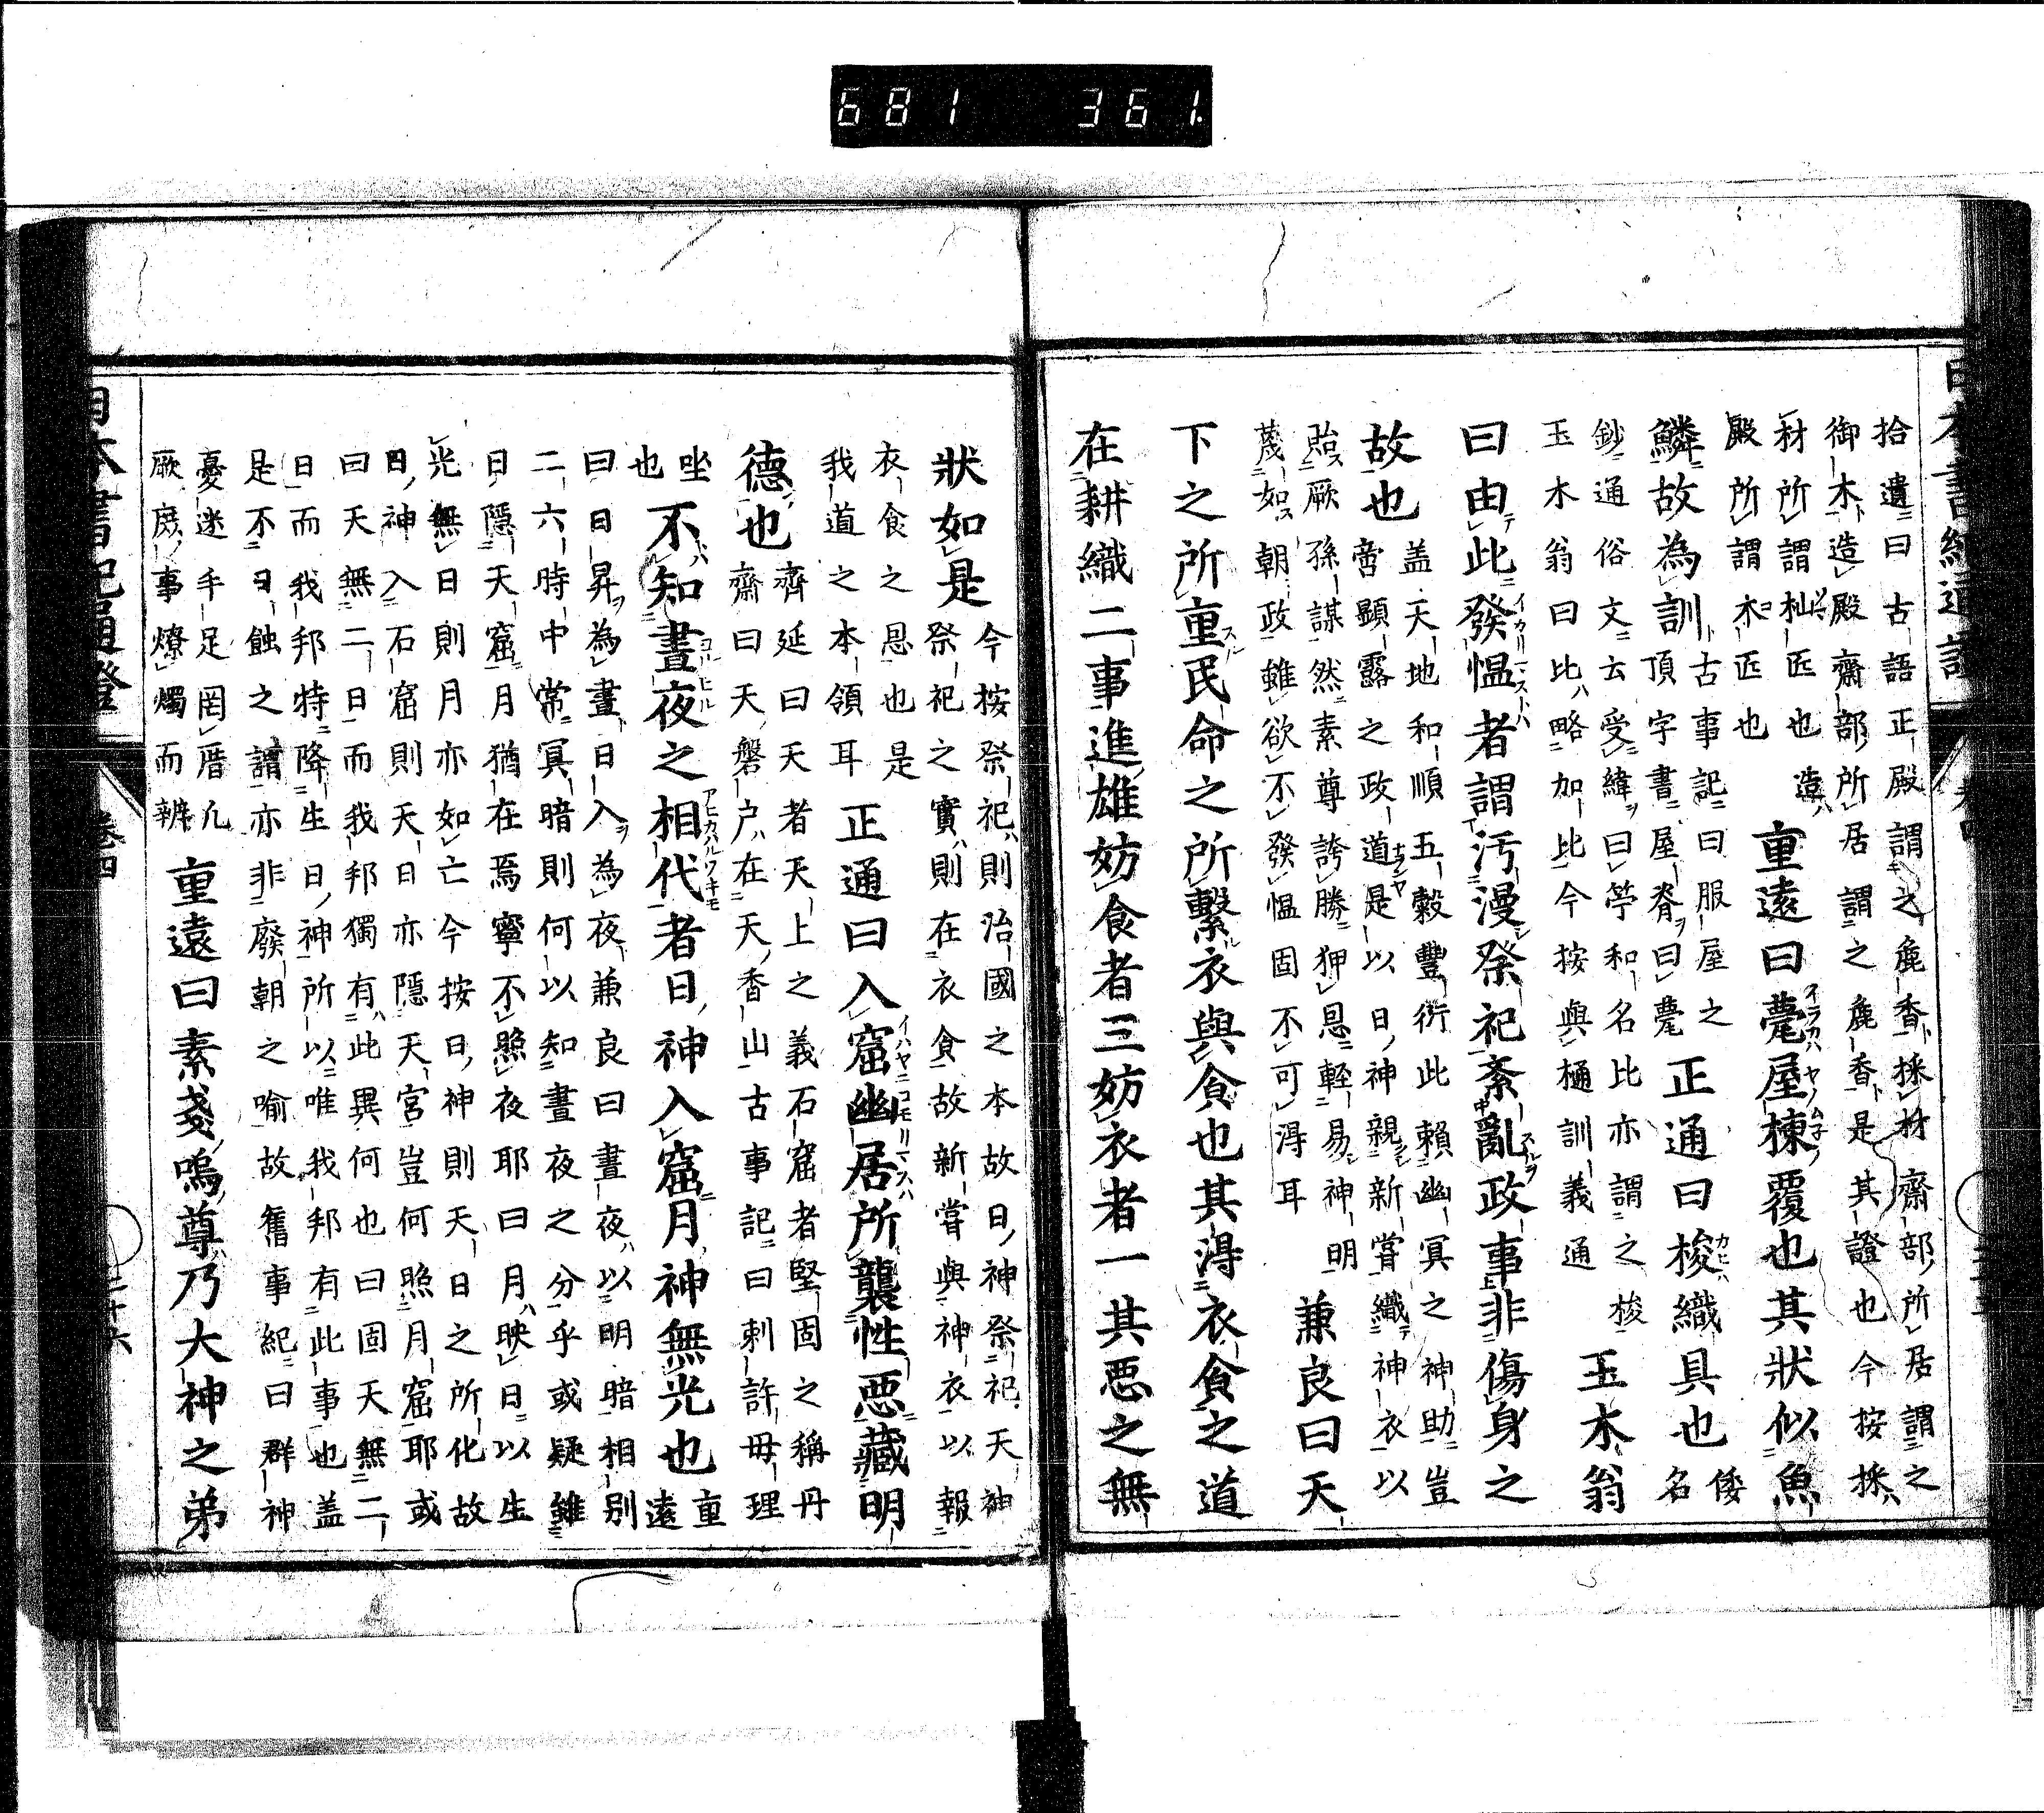 681 361.
拾遺曰古語正殿謂之麁香採材齋部所居謂之
御木造殿齋部所居謂之麁香是其證也今按採
材所謂杣匠也造
殿所謂木匠也
重遠曰甍屋棟覆也其狀似魚
鱗故為訓
古事記曰服屋之
頂字書屋脊曰甍
正通曰梭織具也
倭名
鈔通俗文云受緯曰竽和名比亦謂之梭
玉木翁
曰比略加比今按與樋訓義通
曰由此發慍者謂汚漫祭祀紊亂政事非傷身之
故也
盖天地和順五穀豐衍此賴幽冥之神助豈
啻顯露之政道是以日神親新嘗織神衣以
貽厥孫謀然素尊誇勝狎恩輕易神明
蔑如朝政雖欲不發慍固不可得耳
兼良曰天
下之所重民命之所繫衣與食也其得衣食之道
在耕織二事進雄妨食者三妨衣者一其惡之無
狀如是
今按祭祀則治國之本故日神祭祀天神
祭祀之實則在衣食故新嘗與神衣以報
衣食之恩也是
我道之本領耳
正通曰入窟幽居所襲性惡藏明
德也
齊延曰天者天上之義石窟者堅固之稱丹
齋曰天磐戶在天香山古事記曰刺許毋理
坐
也
不知晝夜之相代者日神入窟月神無光也
重
遠
曰日昇為晝日入為夜兼良曰晝夜以明暗相別
二六時中常冥暗則何以知晝夜之分乎或疑雖
日隱天窟月猶在焉寧不照夜耶曰月映日以生
光無日則月亦如亡今按日神則天日之所化故
日神入石窟則天日亦隱天宮豈何照月窟耶或
曰天無二日而我邦獨有此異何也曰固天無二
日而我邦特降生日神所以唯我邦有此事也盖
是不日蝕之謂亦非廢朝之喻故舊事紀曰群神
憂迷手足罔厝凢
厥庶事燎燭而辨
重遠曰素戔嗚尊乃大神之弟